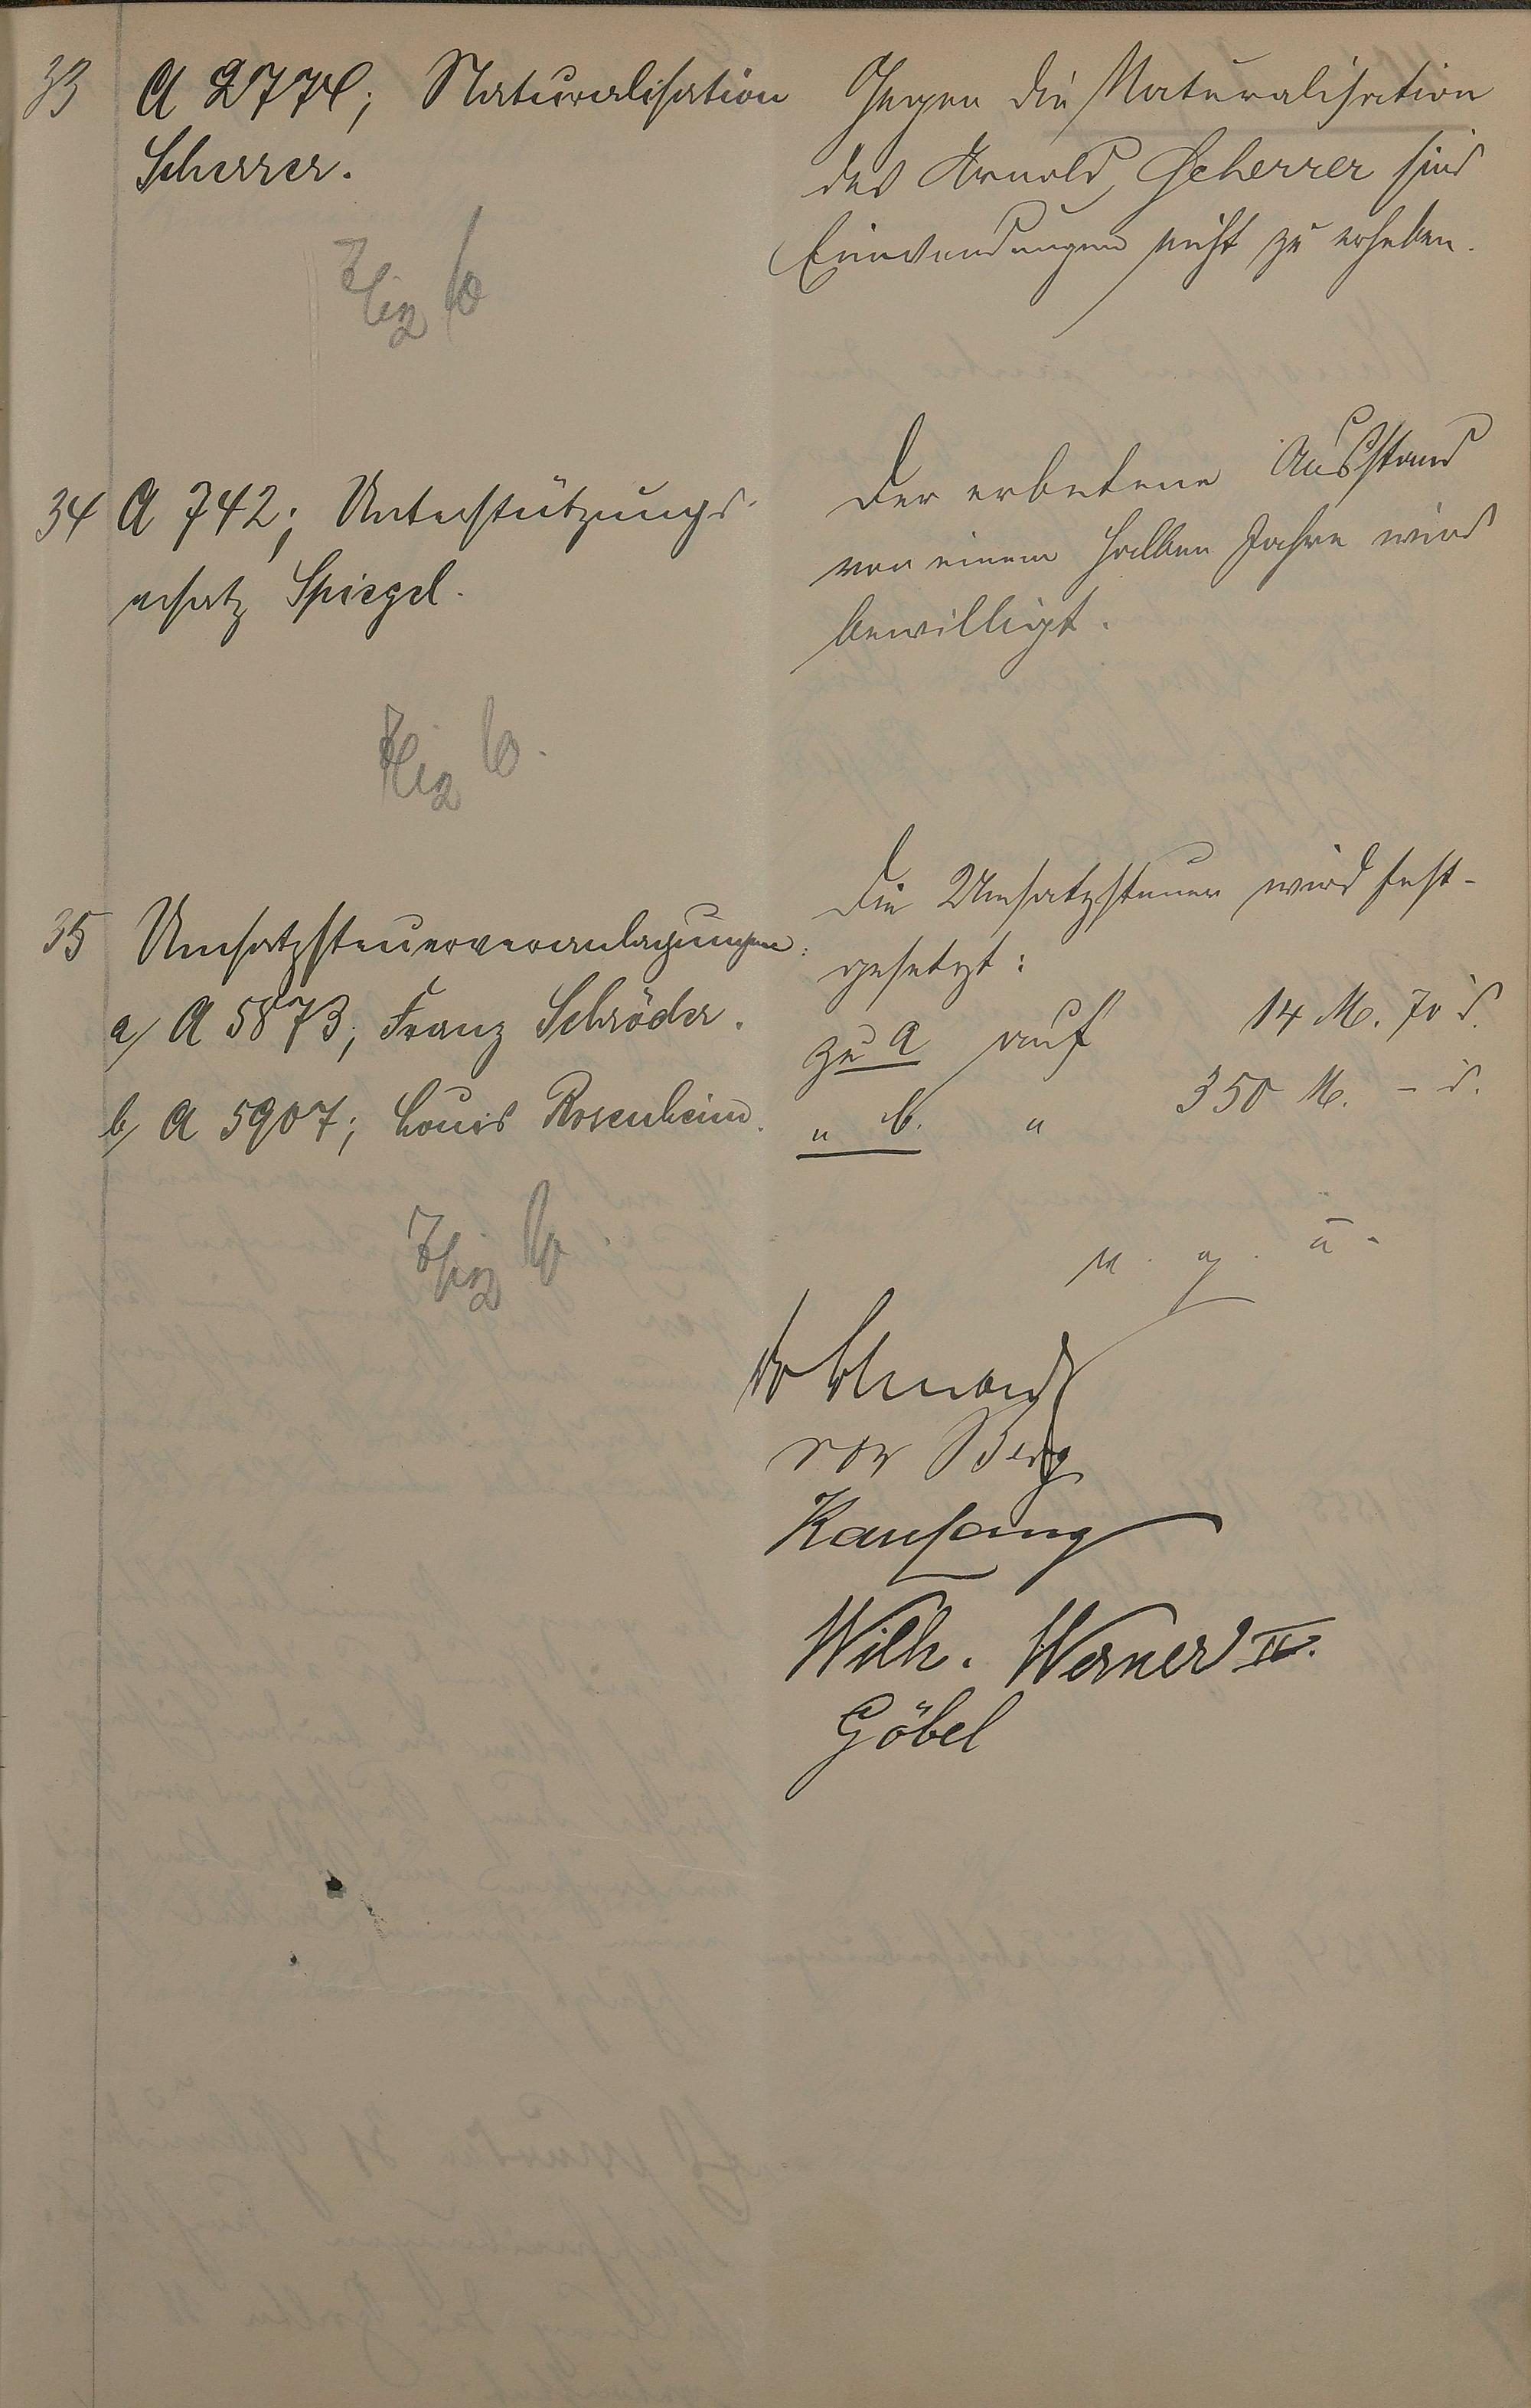 33 A 2774; Naturalisation
Scherrer.
Gegen die Naturalisation
des Arnold Scherrer sind
Einwendungen nicht zu erheben.
34 A 742; Unterstützungs-
ersatz Spiegel.
Der erbetene Ausstand
von einem halben Jahre wird
bewilligt.
35 Umsatzsteuerveranlagungen:
a/ A 5873; Franz Schröder.
b/ A 5907; Louis Rosenheim.
Die Umsatzsteuer wird fest-
gesetzt:
zu a auf 14 M. 70 d.
" b. " 350 M. - d.
v. g. u.
von Berg
Kaufung
Wilh. Werner IV.
Göbel